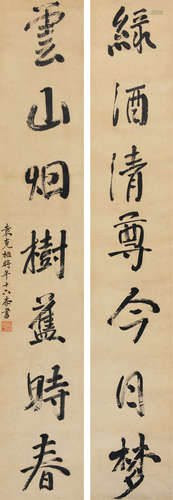 綠酒清尊今日梦
雲山烟樹舊時春
袁克桓時年十六春書